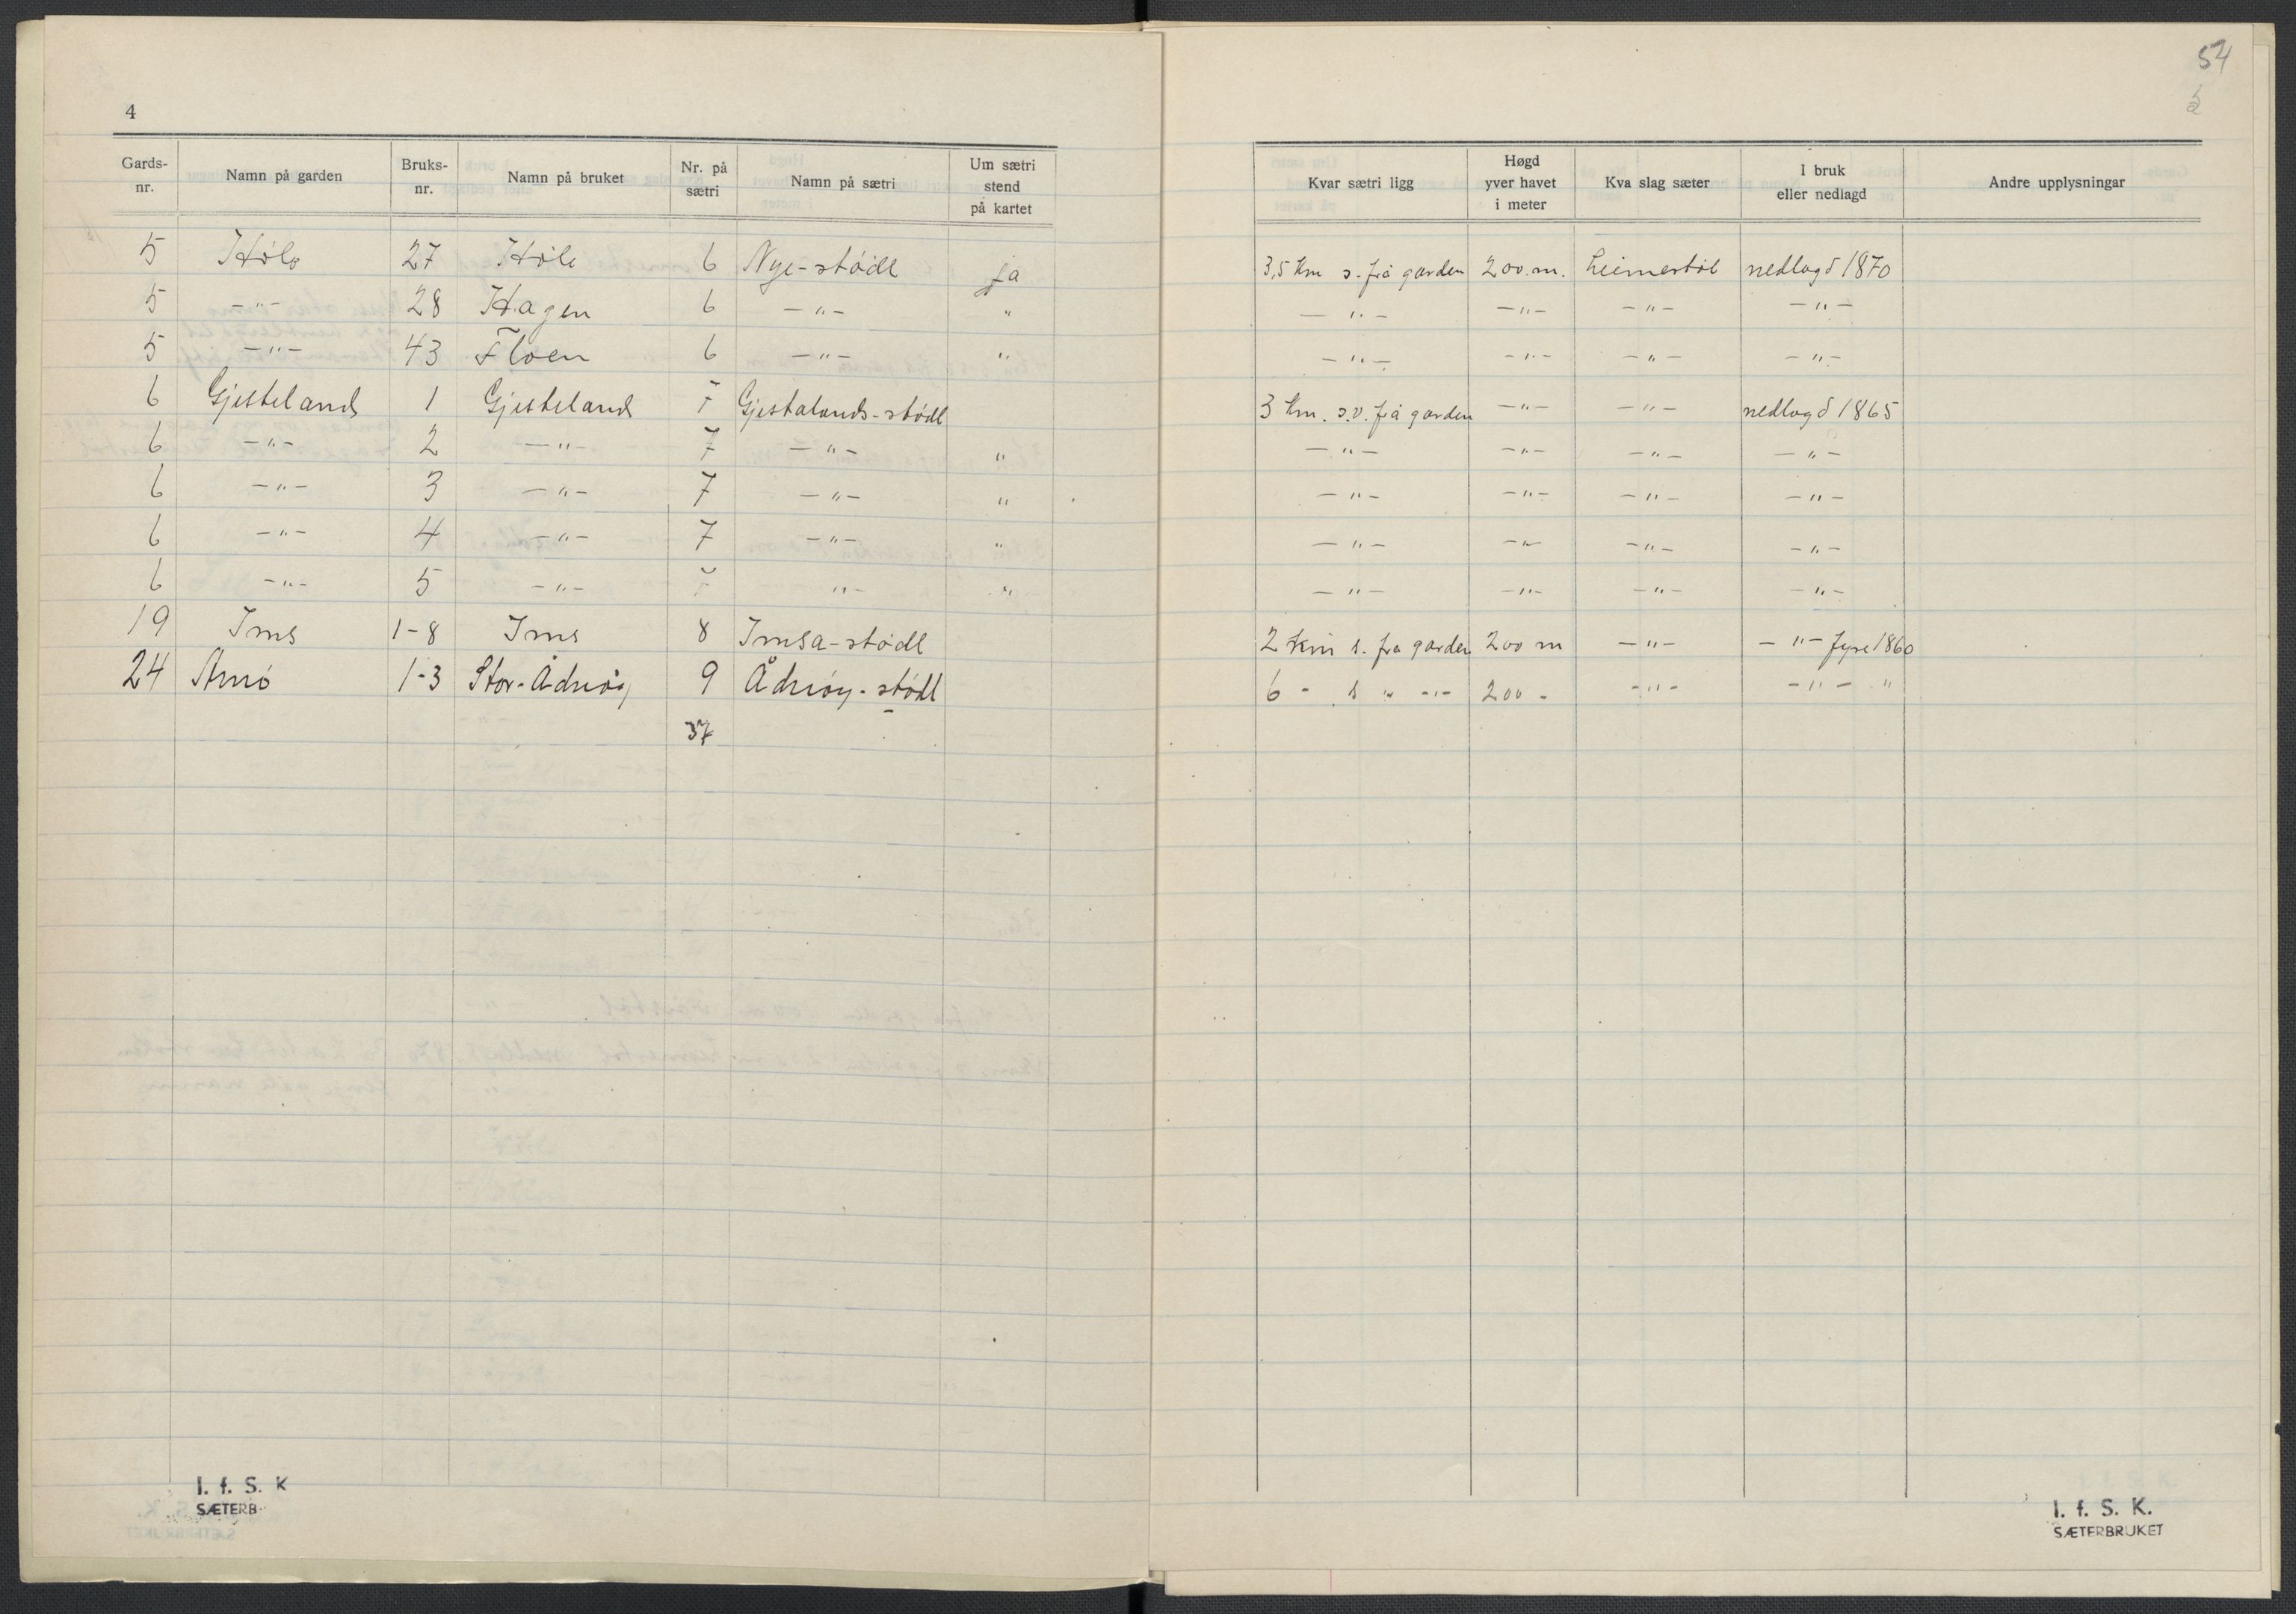 54
4
Gards-nr. | Namn på garden | Bruks-nr. | Namn på bruket | Nr. på sætri | Namn på sætri | Um sætri stend på kartet | Kvar sætri ligg | Høgd yver havet i meter | Kva slag sæter | I bruk eller nedlagd | Andre upplysningar
5 | Høle | 27 | Høle | 6 | Nye-stødl | ja | 3,5 km s. frå garden | 200 m. | heimestøl | nedlagd 1870
5 | -"- | 28 | Hagen | 6 | -"- | " | -"- | -"- | -"- | -"-
5 | -"- | 43 | Floen | 6 | -"- | " | -"- | -"- | -"- | -"-
6 | Gjesteland | 1 | Gjesteland | 7 | Gjestalands-stødl | | 3 km. s.v. frå garden | -"- | -"- | nedlagd 1865
6 | -"- | 2 | -"- | 7 | -"- | " | -"- | -"- | -"- | -"-
6 | -"- | 3 | -"- | 7 | -"- | " | -"- | -"- | -"- | -"-
6 | -"- | 4 | -"- | 7 | -"- | " | -"- | -"- | -"- | -"-
6 | -"- | 5 | -"- | 7 | -"- | " | -"- | -"- | -"- | -"-
19 | Ims | 1-8 | Ims | 8 | Imsa-stødl | | 2 km s. fra garden | 200 m | -"- | -"- fyre 1860
24 | | 1-3 | | 9 | | | 6 - s " -"- | 200 - | -"- | -"- "
37
I. f. S. K
SÆTERB
I. f. S. K.
SÆTERBRUKET